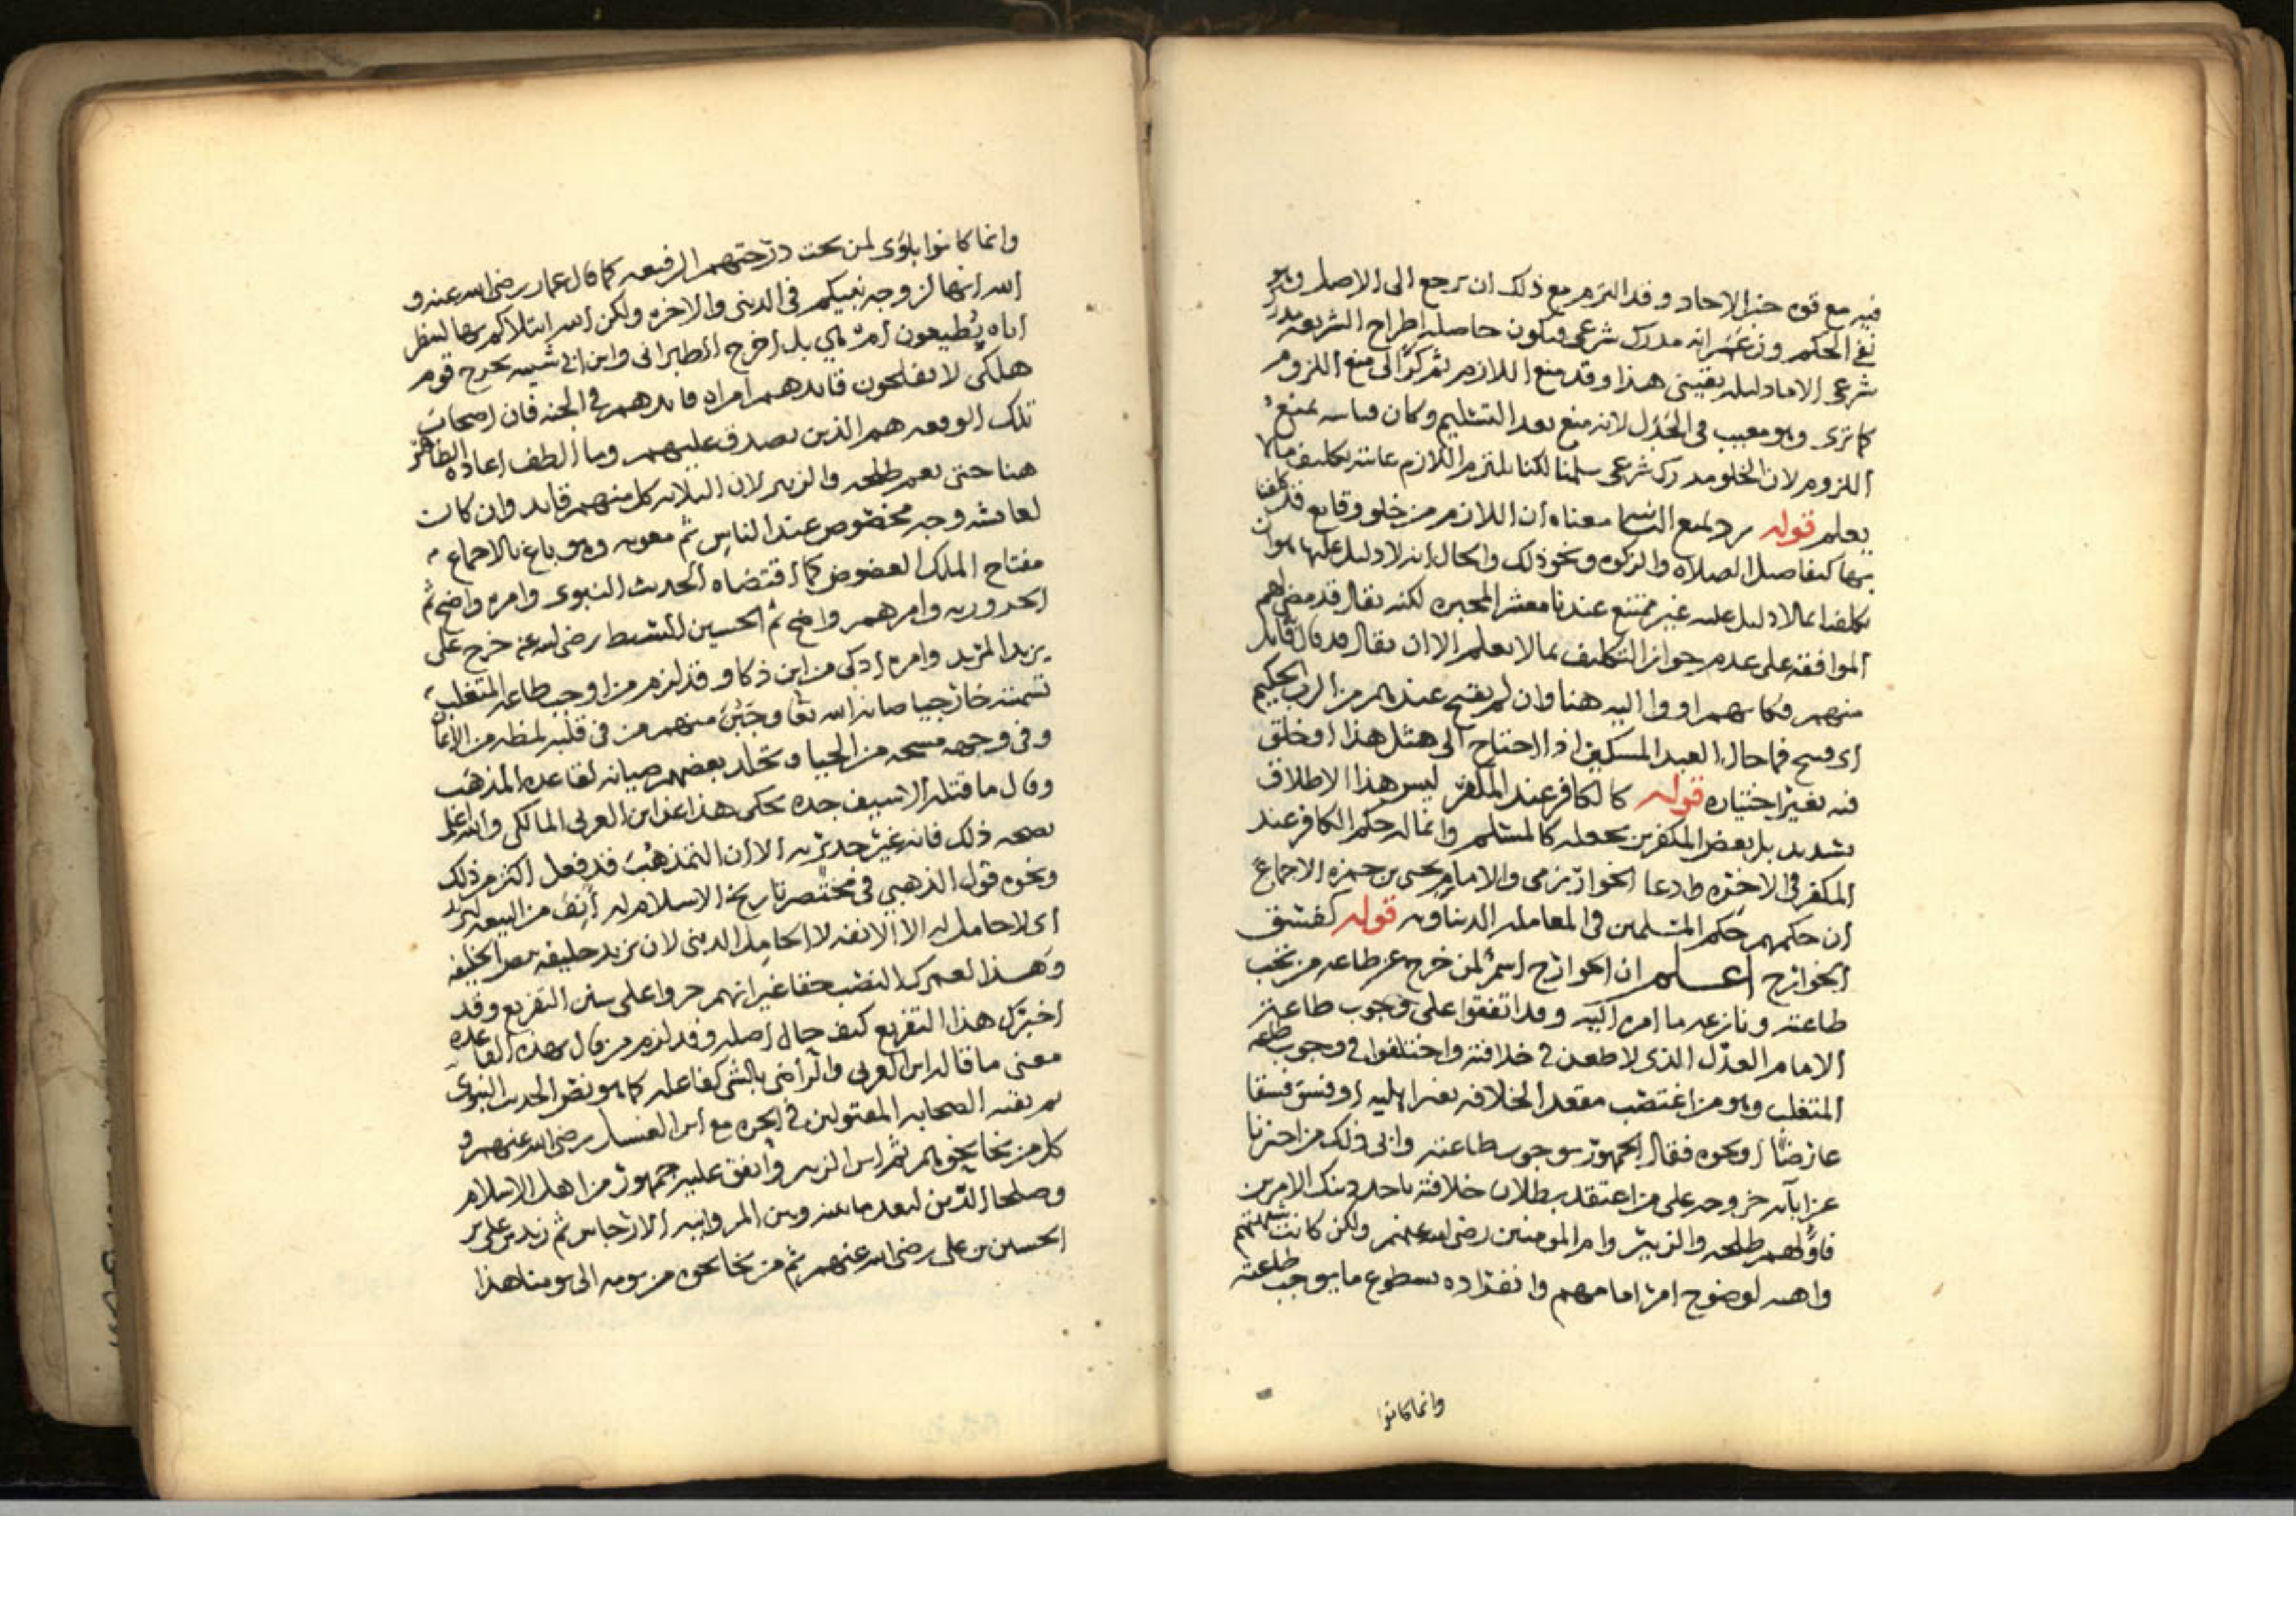 فيه مع قوه خبر الاحاد وقد التزم مع ذلك ان يرجع الى الاصل وهو
نفي الحكم وزعم انه مدرك شرعي فيكون حاصله اطراح الشريعه
شرعي الا ما دليله يقيني هذا وقد منع اللازم ثم كرّ الى منع اللزوم
كما ترى وهو معيب في الجدل لانه منع بعد التسليم وكان قياسه بمنع
اللزوم لان الخلو مدرك شرعي سلمنا لكنا نلتزم اللازم غايته تكليف مالا
يعلم قوله يرد لمنع معناه ان اللازم من خلو وقايع قد كلفنا
بها كتفاصيل الصلاه والزكوه ونحو ذلك والحال انه لا دليل عليها هو ان
تكلفنا بمالا دليل عليه غير ممتنع عندنا معشر المجبره لكنه يقال قد مضى لهم
الموافقه على عدم جواز التكليف بمالا يعلم الا ان يقال قد قال قايل
منهم فكانهم اووا اليه هنا وان لم يقبح عندهم من الرب الحكيم
اي قبيح فما حال العبد المسكين اذا احتاج الى مثل هذا او خلق
فيه بغير اختياره قوله كالكافر عند المكفر ليس هذا الاطلاق
بسديد بل بعض المكفرين يجعله كالمسلم وانما له حكم الكافر عند
المكفر في الاخره وادعا الخوارزمي والامام يحيى بن حمزه الاجماع
ان حكمهم حكم المسلمين في المعامله الدنياويه قوله كفسق
الخوارج اعلم ان الخوارج اسم لمن خرج عن طاعه من تجب
طاعته ونازعه ما امره اليه وقد اتفقوا على وجوب طاعة
الامام العدل الذي لا طعن في خلافته واختلفوا في وجوب طاعه
المتغلب وهو من اغتصب مقعد الخلافه بغير اهليه او فسق فسقا
عارضا او نحوه فقال الجمهور بوجوب طاعته وابى ذلك من اخترنا
عزابآيه خروجه على من اعتقد بطلان خلافته باحد ذينك الامرين
فاولهم طلحه والزبير وام المومنين رضي الله عنهم ولكن كانت شبهتهم
واهيه لوضوح امر امامهم وانفراده بسطوع ما يوجب طاعته
وانما كانوا
وانما كانوا بلوى لمن تحت درجتهم الرفيعه كما قال عمار رضي الله عنه و
الله انها لزوجه نبيكم في الدنيى والاخره ولكن الله ابتلاكم بها لينظر
اياه تطيعون ام هي بل اخرج الطبراني وابن ابي شيبه يخرج قوم
هلكى لا يفلحون قايدهم امراه قايدهم في الجنه فان اصحاب
تلك الوقعه هم الذين يصدق عليهم وما الطف اعاده الظاهر
هنا حتى يعم طلحه والزبير لان الثلاثه كل منهم قايد وان كانت
لعايشه وجه مخصوص عند الناس ثم معويه وهو باغ بالاجماع
مفتاح الملك العضوض كما اقتضاه الحديث النبوي وامره واضح ثم
الحروريه وامرهم واضح ثم الحسين السبط رضي الله عنه خرج على
يزيد المريد وامره اذكى من ابن ذكا وقد لزم من اوجب طاعه المتغلب
تسميته خارجيا صانه الله تعا وجَبُنَ منهم من في قلبه لمظه من الايمان
وفي وجهه مسحه من الحيا وتجلد بعضهم صيانه لقاعده المذهب
وقال ما قتله الا سيف جده يحكى هذا عن ابن العربي المالكي والله اعلم
بصحه ذلك فانه غير جدير به الا ان التمذهب قد فعل اكثر من ذلك
ونحوه قول الذهبي في مختصر تاريخ الاسلام له أنِفَ من البيعه ليزيد
اي لا حامل له الا الانفه لا الحامل الديني لان يزيد خليفه الخليفه
وهذا لعمرك النصب حقا غير انهم جروا على سنن التفريع وقد
اخبرك هذا التفريع كيف حال اصله وقد لزم من قال بهذه القاعده
معنى ما قاله ابن العربي والراضي بالشي كفاعله كما هو نص الحديث النبوي
ثم بقيه الصحابه المقتولين في الحره مع ابن الغسيل رضي الله عنهم و
كل من نحا نحوهم ثم ابن الزبير واتفق عليه جمهور من اهل الاسلام
وصلحا الدين لبعد ما بينه وبين المروانيه الارجاس ثم زيد بن علي بن
الحسين بن علي رضي الله عنهم ثم من نحا نحوه من يومه الى يومنا هذا